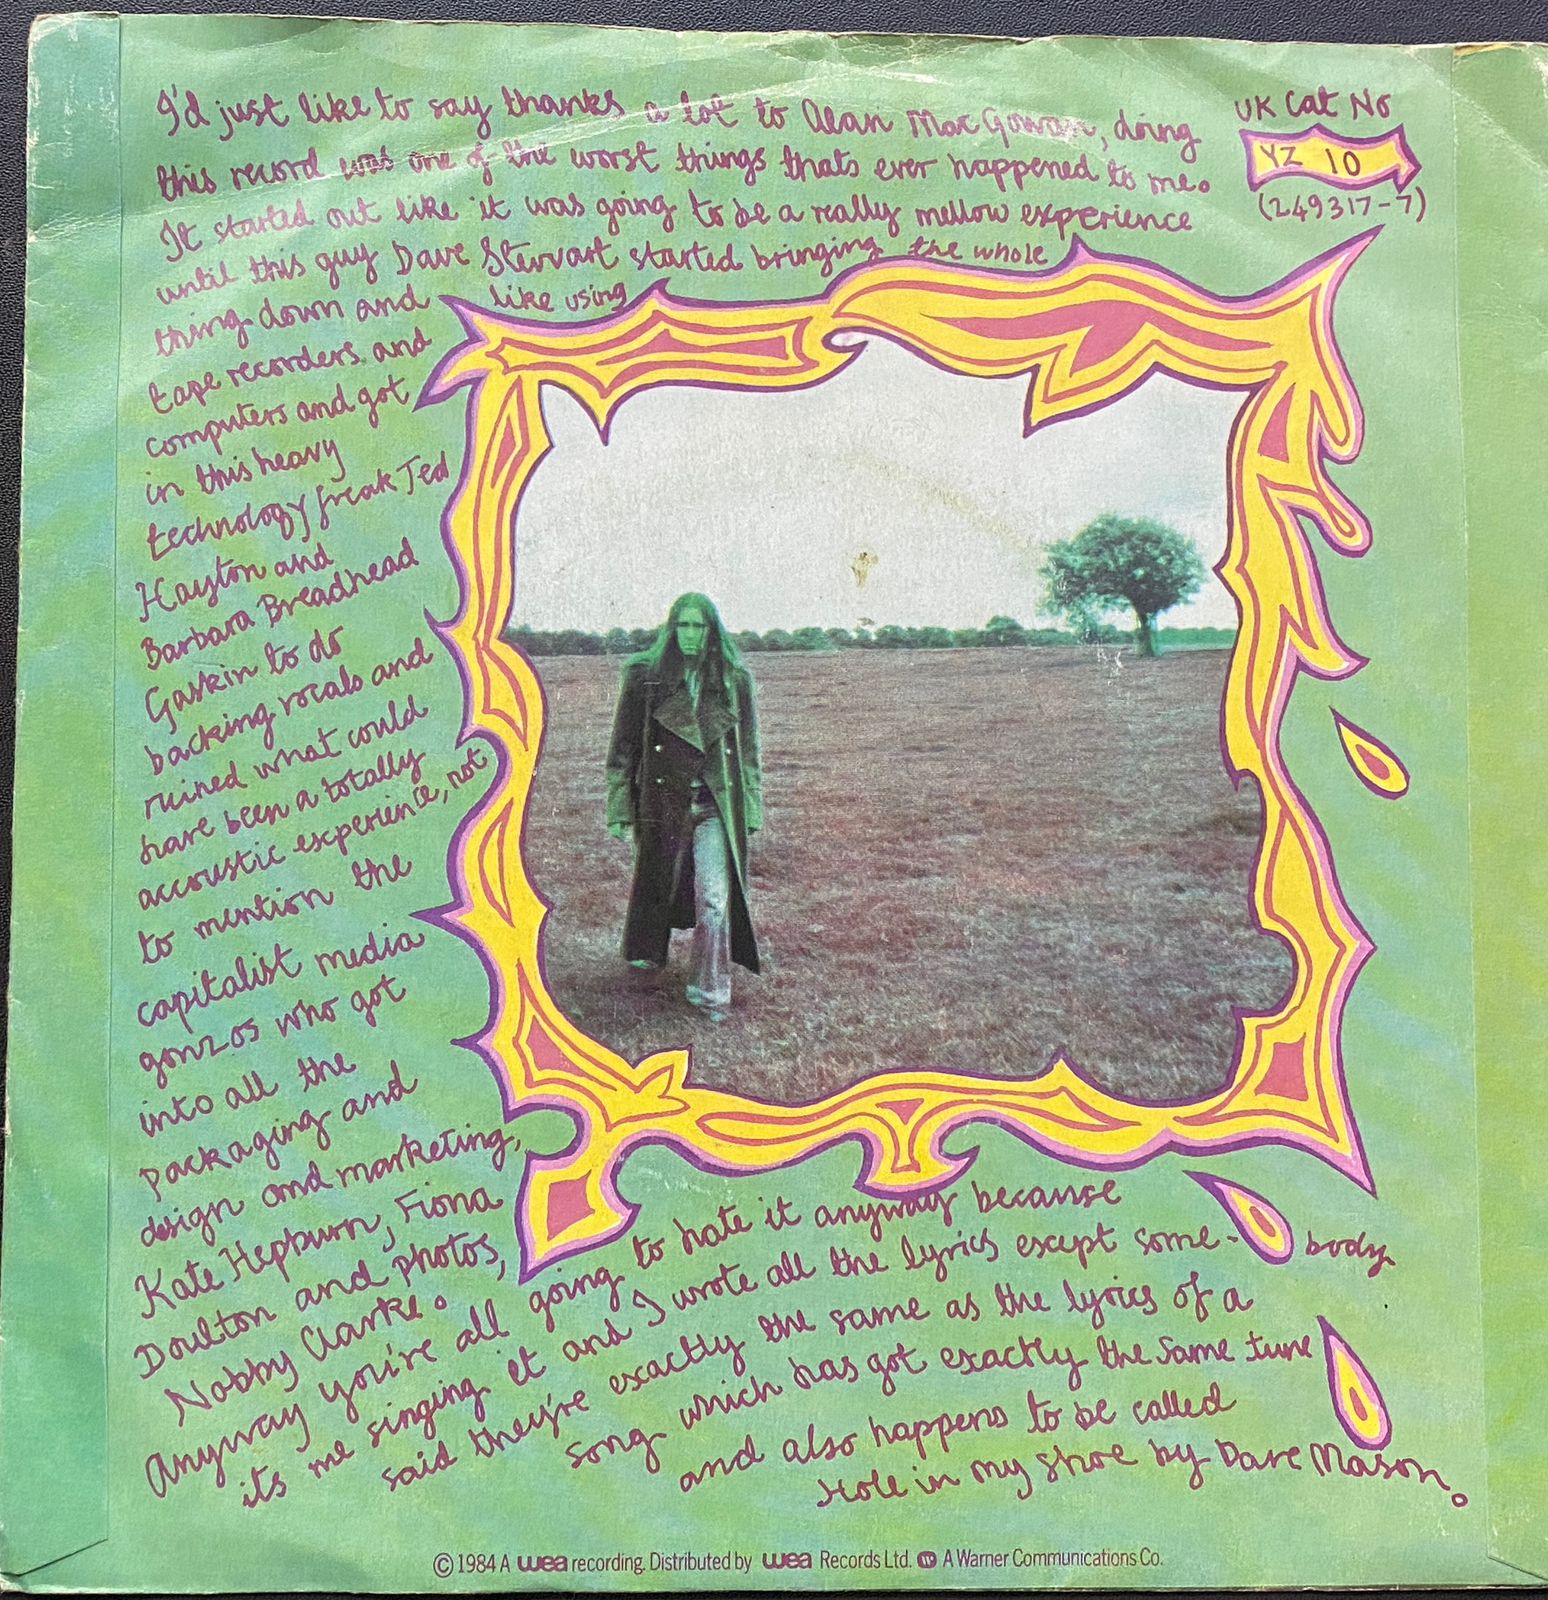 I'd just like to say thanks a lot to Alan MacGowan, doing
this record was one of the worst things thats ever happened to me.
It started out like it was going to be a really mellow experience
until this guy Dave Stewart started bringing the whole
thing down and like using
tape recorders and
computers and got
in this heavy
technology freak Ted
Hayton and
Barbara Breadhead
Gaskin to do
backing vocals and
ruined what could
have been a totally
accoustic experience, not
to mention the
capitalist media
gonzos who got
into all the
packaging and
design and marketing,
Kate Hepburn, Fiona
Doulton and photos,
Nobby Clarke.
Anyway you're all going to hate it anyway because
its me singing it and I wrote all the lyrics except some-body
said they're exactly the same as the lyrics of a
song which has got exactly the same tune
and also happens to be called
Hole in my shoe by Dave Mason.
UK Cat No
YZ 10
(249317-7)
© 1984 A wea recording. Distributed by wea Records Ltd. A Warner Communications Co.